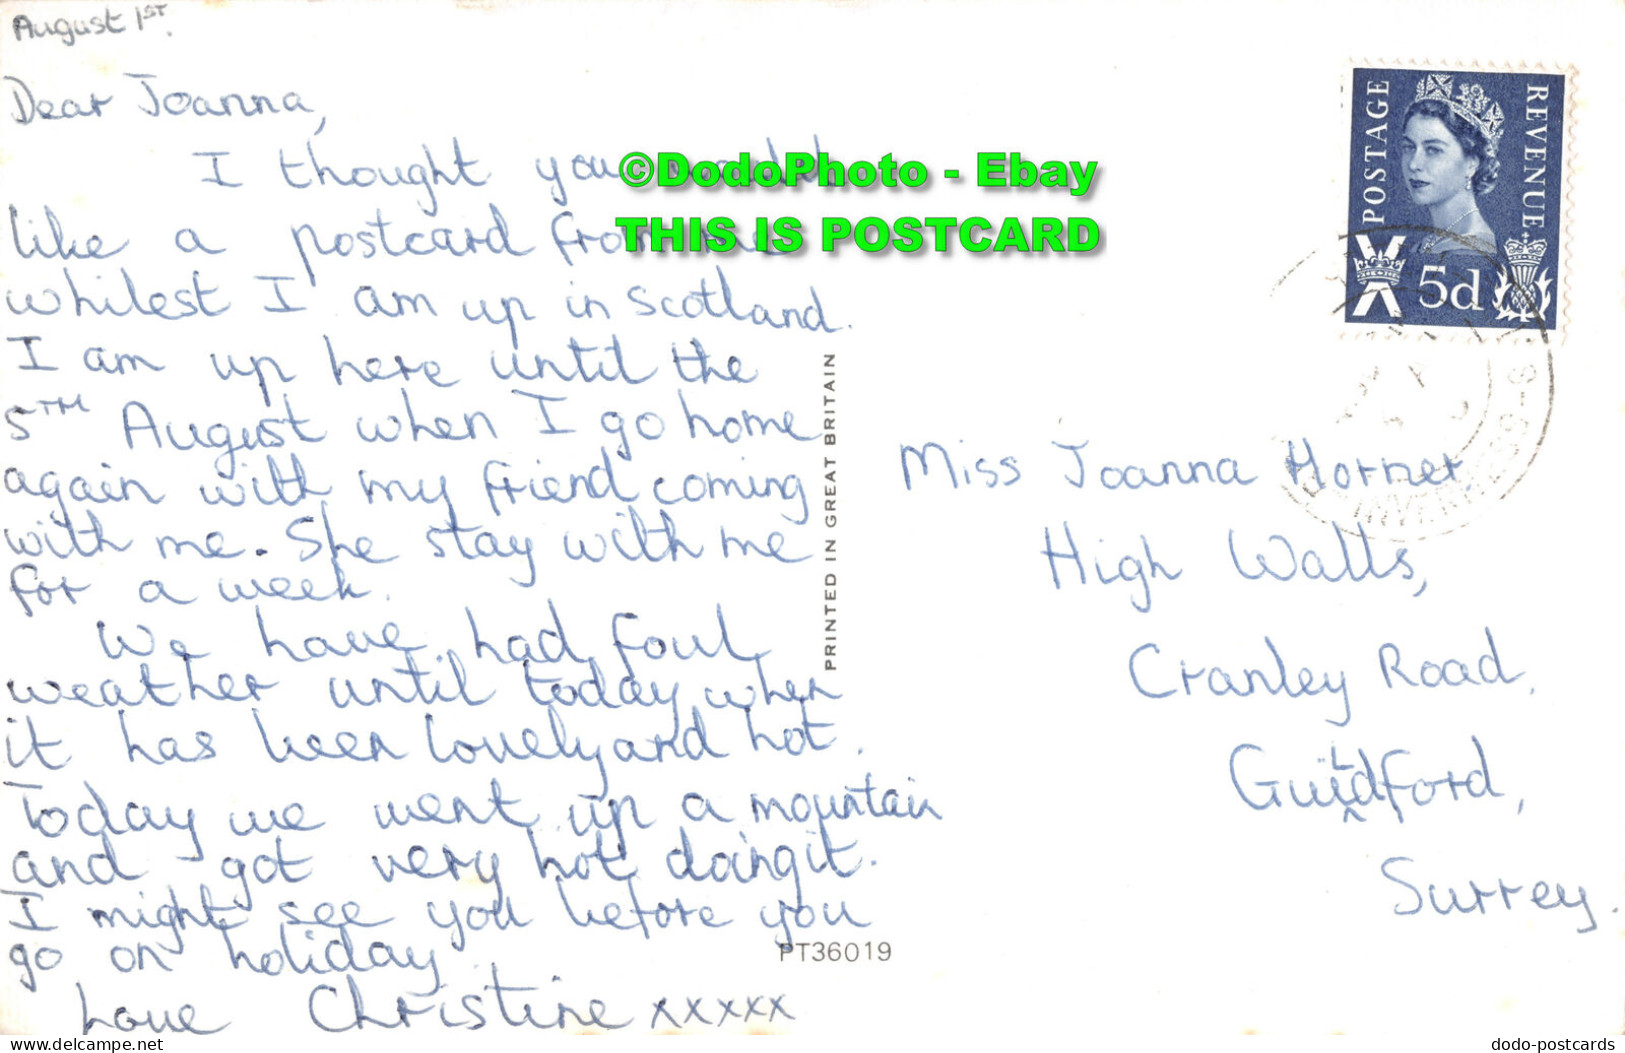 August 1ST.
Dear Joanna,
I thought you would
like a postcard from me
whilest I am up in Scotland.
I am up here until the
5TH August when I go home
again with my friend coming
with me. She stay with me
for a week.
We have had foul
weather until today when
it has been lovely and hot.
Today we went up a mountain
and got very hot doing it.
I might see you before you
go on holiday
Love Christine xxxxx
©DodoPhoto - Ebay
THIS IS POSTCARD
PRINTED IN GREAT BRITAIN
PT36019
POSTAGE
REVENUE
5d
Miss Joanna Horner
High Walls,
Cranley Road,
Guildford,
Surrey.
delcampe.net
dodo-postcards